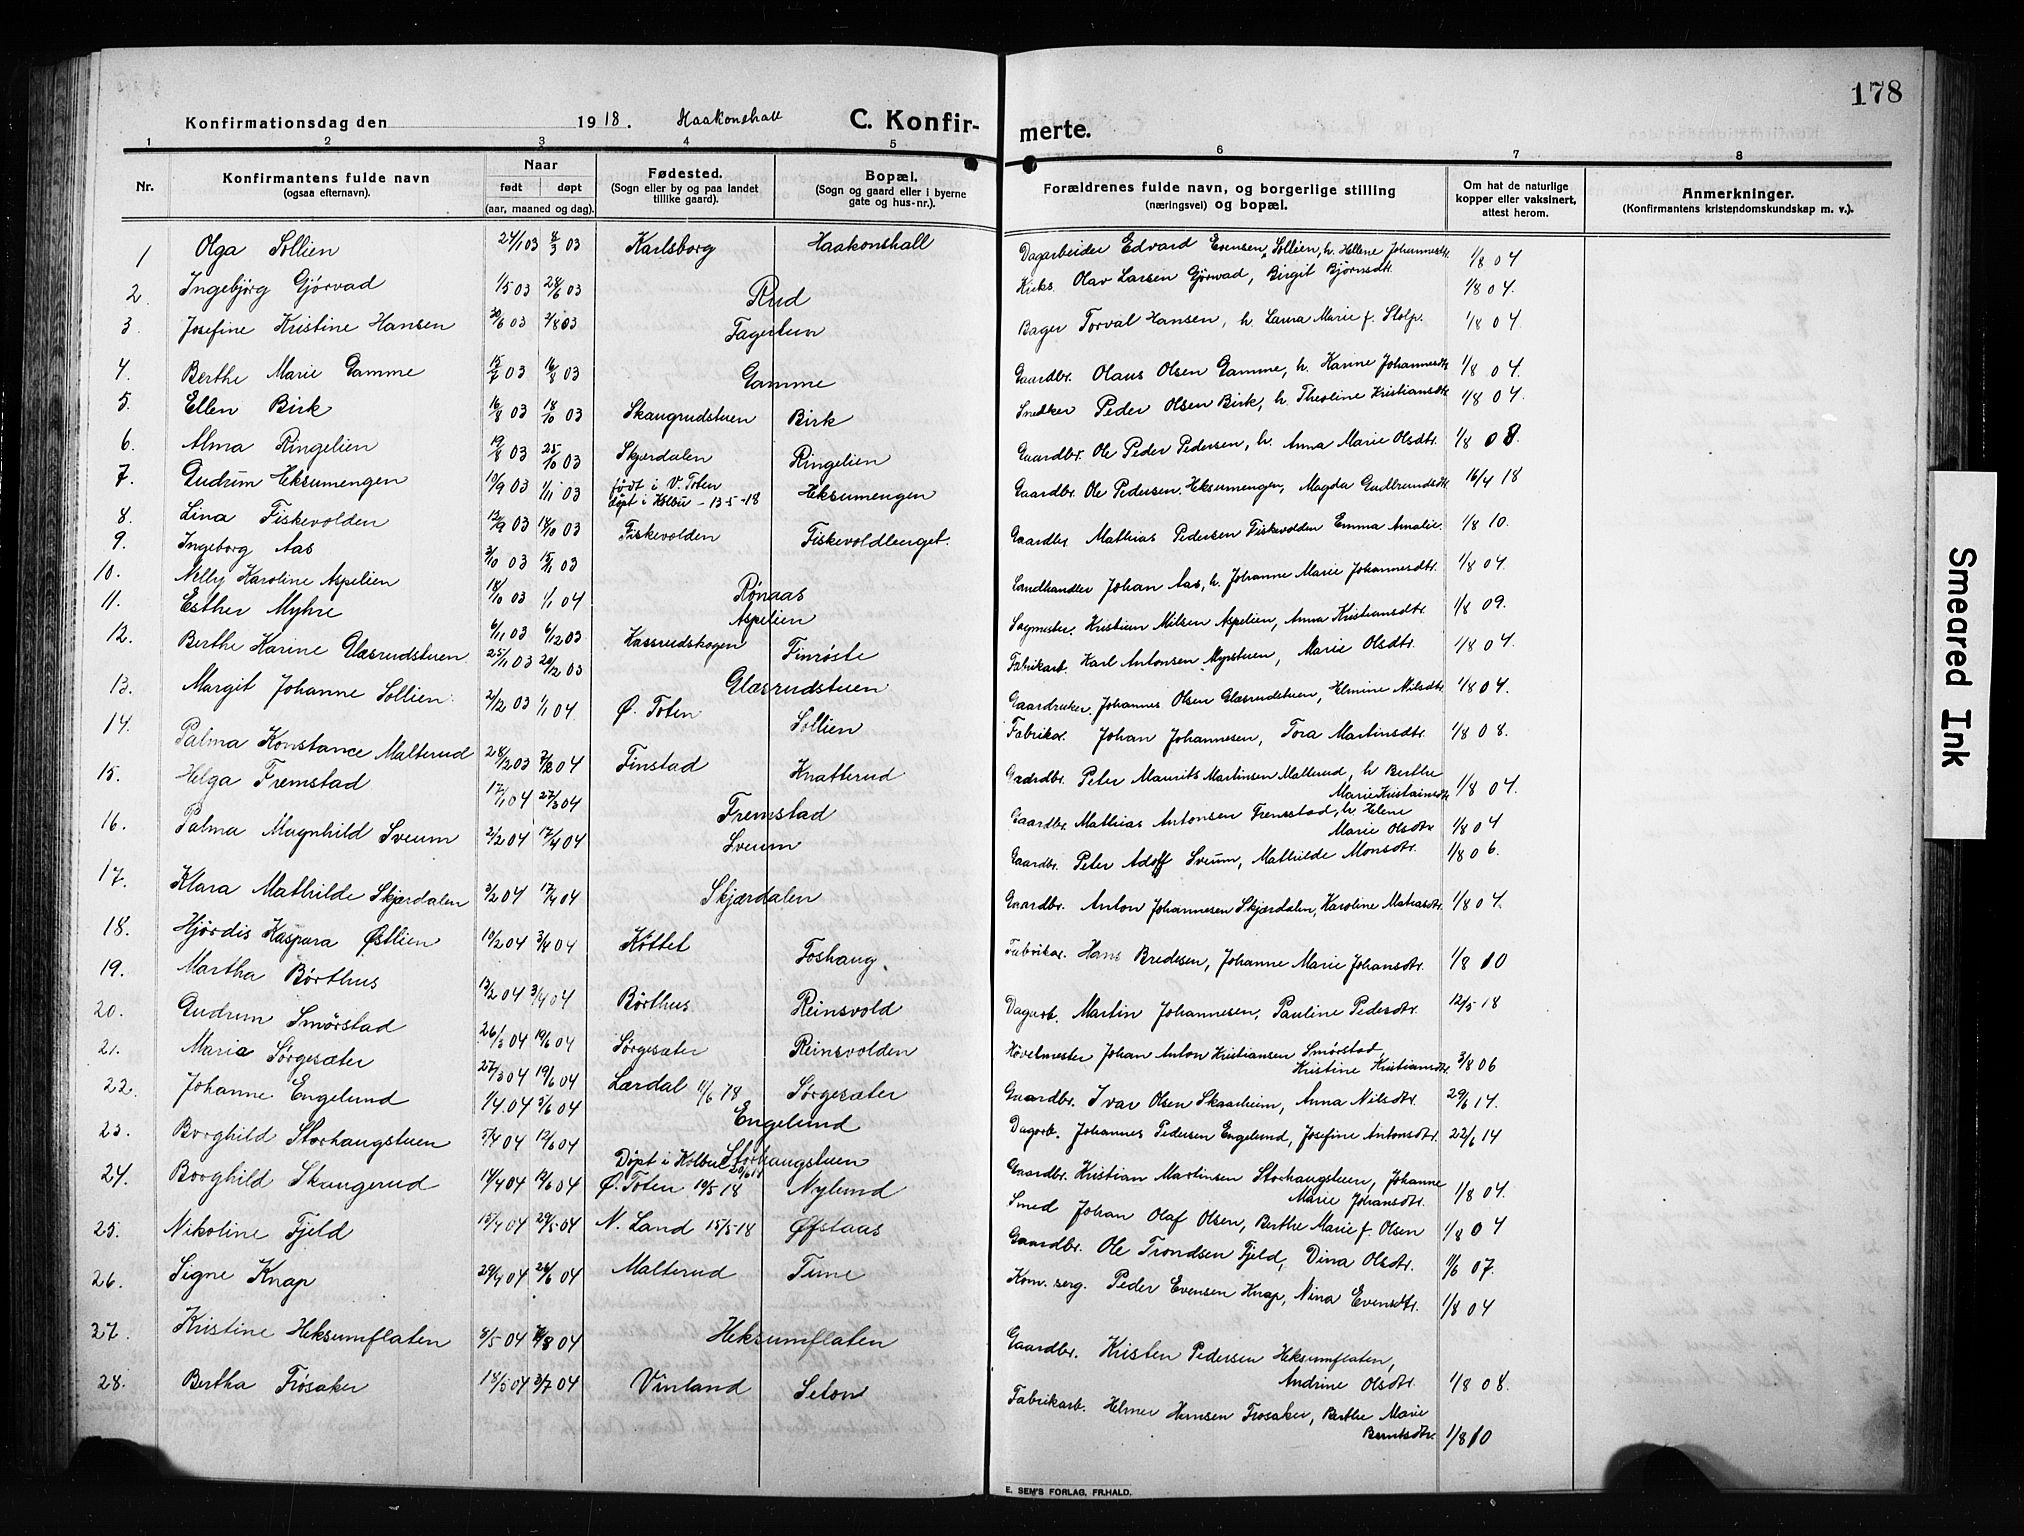 178
Konfirmationsdag den 1918. Haakonshall C. Konfirmerte.
1 2 3 4 5 6 7 8
Nr.
Konfirmantens fulde navn
(ogsaa efternavn).
Naar
født døpt
(aar, maaned og dag).
Fødested.
(Sogn eller by og paa landet
tillike gaard).
Bopæl.
(Sogn og gaard eller i byerne
gate og hus-nr.).
Forældrenes fulde navn, og borgerlige stilling
(næringsvei) og bopæl.
Om hat de naturlige
kopper eller vaksinert,
attest herom.
Anmerkninger.
(Konfirmantens kristendomskundskap m. v.).
1 Olga Sollien 24/1 03 8/3 03 Karlsborg Haakonshall Dagarbeider Edvard Evensen Sollien, h. Hellene Johannesdtr. 1/8 04
2. Ingebjørg Gjørvad 1/5 03 28/6 03 Rud Olav Larsen Gjørvad, Birgit Bjørnsdtr. 1/8 04.
3. Josefine Kristine Hansen 20/6 03 2/8 03 Fagertun Bager Torval Hansen, h. Laura Marie f. Stolp. 1/8 04
4. Berthe Marie Gamme 15/7 03 16/8 03 Gamme Gaardbr. Olaus Olsen Gamme, h. Karine Johannesdtr 1/8 04.
5. Ellen Birk 16/8 03 18/10 03 Skaugrudstuen Birk Snedker Peder Olsen Birk, h. Theoline Kristiansdtr 1/8 04.
6. Alma Ringelien 19/8 03 25/10 03 Skjærdalen Ringelien Gaardbr. Ole Peder Pedersen, h. Anna Marie Olsdtr. 1/8 08.
7. Gudrum Heksumengen 13/9 03 1/11 03 født i V. Toten
døpt i Kolbu - 13-5-18 Heksumengen Gaardbr. Ole Pedersen Heksumengen, Magda Gudbrundsdtr 16/4 18
8. Lina Fiskevolden 12/9 03 18/10 03 Fiskevolden Fiskevoldberget. Gaardbr. Mathias Pedersen Fiskevolden Emma Amalie. 1/8 10.
9. Ingeborg Aas 3/10 03 15/11 03 Rønaas Landhandler Johan Aas, h. Johanne Marie Johannesdtr. 1/8 04.
10. Nelly Karoline Aspelien 18/10 03 1/1 04 Aspelien Sagmester. Kristian Nilsen Aspelien, Anna Kristiansdtr 1/8 09.
11. Esther Myhre 6/11 03 6/12 03 Kassrudskogen Finrøste Fabrikarb. Karl Antonsen Myrstuen, Marie Olsdtr. 1/8 04.
12. Berthe Karine Glæsrudstuen 25/11 03 20/12 03 Glæsrudstuen Gaardbruker. Johannes Olsen Glæsrudstuen, Helmine Nilsdtr. 1/8 04.
13. Margit Johanne Sollien. 2/12 03 1/1 04. Ø. Toten Sollien Fabrikar. Johan Johannesen, Tora Martinsdtr. 1/8 08.
14. Palma Konstance Malterud 28/12 03 7/2 04 Finstad Knatterud Gaardbr. Peter Maurits Martinsen Malterud, h Berthe
Marie Kristiansdtr 1/8 04.
15. Helga Fremstad 17/1 04 27/3 04 Fremstad Gaardbr Mathias Antonsen Fremstad, h. Helene
Marie Olsdtr 1/8 04
16. Palma Magnhild Sveum 2/2 04 17/4 04 Sveum Gaardbr. Peter Adolf Sveum, Mathilde Monsdtr. 1/8 06.
17. Klara Mathilde Skjærdalen 3/2 04 17/4 04 Skjærdalen Gaardbr. Anton Johannesen Skjærdalen, Karoline Matiasdtr. 1/8 04.
18. Hjørdis Kaspara Østlien 10/2 04 3/4 04 Kottet Foshaug. Fabrikar. Hans Bredesen, Johanne Marie Johansdtr. 1/8 10
19. Martha Børthus 13/2 04 3/4 04 Børthus Reinsvold Dagarb. Martin Johannesen, Pauline Pedersdtr. 12/5 18
20. Gudrun Smørstad 26/3 04 19/6 04 Sørgesæter Reinsvolden Høvelmester Johan Anton Kristiansen Smørstad
Kristine Kristiansdtr 3/8 06
21. Marie Sørgesæter 27/3 04 19/6 04 Lærdal 1/6 18 Sørgesæter Gaardbr. Ivar Olsen Skaarheim, Anna Nilsdtr. 29/6 14.
22. Johanne Engelund 1/4 04 5/6 04 Engelund Dagarb. Johannes Pedersen Engelund, Josefine Antonsdtr. 22/6 14
23. Borghild Storhaugstuen 5/4 04 12/6 04 Døpt i Kolbu Storhaugstuen Gaardbr. Kristian Martinsen Storhaugstuen, Johanne
Marie Johansdtr. 1/8 04.
24. Borghild Skaugerud 14/4 04 12/6 04 Ø. Toten 10/5 18 Nylund Smed Johan Olaf Olsen, Berthe Marie f. Olsen 1/8 04
25. Nikoline Fjeld 15/4 04 29/5 04 N. Land 15/5-18 Øfstaas Gaardbr. Ole Trondsen Fjeld, Dina Olsdtr. 11/6 07.
26. Signe Knap 29/4 04 26/6 04 Malterud Tune Kom. serg. Peder Evensen Knap, Nina Evensdtr. 1/8 04
27. Kristine Heksumflaten 8/5 04 7/8 04 Heksumflaten Gaardbr. Kristen Pedersen Heksumflaten,
Andrine Olsdtr. 1/8 08.
28. Bertha Frøsaker 18/5 04 3/7 04 Vinland Seton Fabrikarb. Helmer Hansen Frøsaker, Berthe Marie
Berntsdtr. 1/8 10
E. SEM'S FORLAG, FR.HALD.
Smeared Ink